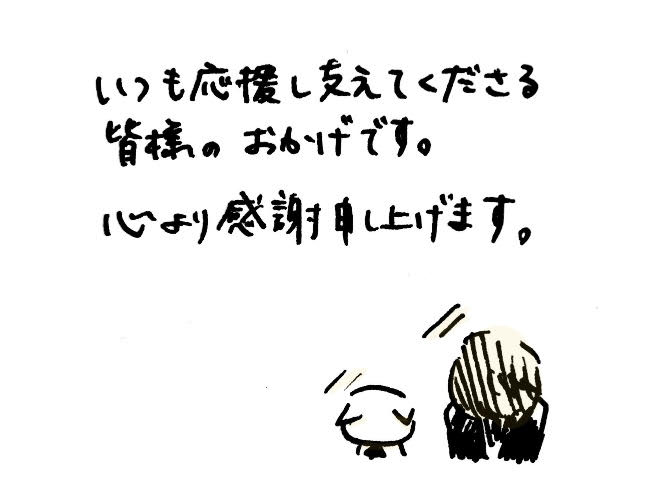 いつも応援し支えてくださる
皆様のおかげです。
心より感謝申し上げます。